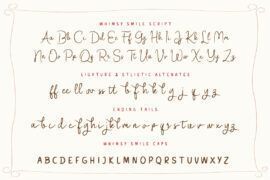 WHIMSY SMILE SCRIPT
Aa Bb Cc Dd Ee Ff Gg Hh Ii Jj Kk Ll Mm
Nn Oo Pp Qq Rr Ss Tt Uu Vv Ww Xx Yy Zz
LIGATURE & STLISTIC ALTERNATES
ENDING TAILS
a b c d e f g h i j k l m n o p q r s t u v w x y z
WHIMSY SMILE CAPS
A B C D E F G H I J K L M N O P Q R S T U V W X Y Z